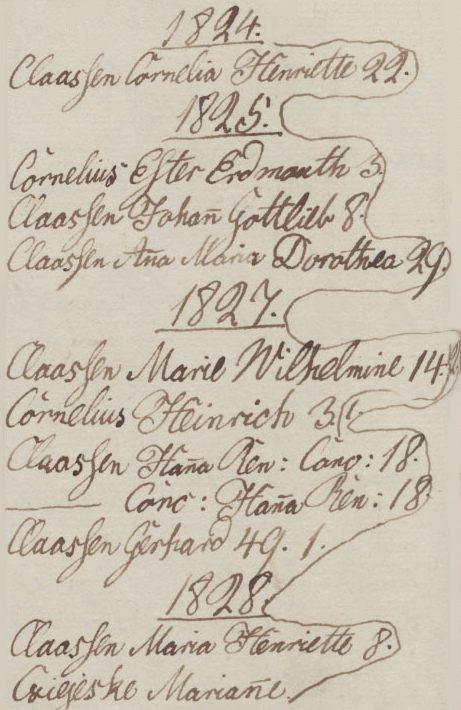 1824.
Claassen Cornelia Henriette 22.
1825.
Cornelius Ester Erdmouth 3.
Claassen Johan̄ Gottlieb 8.
Claassen An̄a Maria Dorothea 29.
1827.
Claassen Marie Wilhelmine 14.
Cornelius Heinrich 3.
Claassen Han̄a Ren: Caro: 18.
Caro: Han̄a Ren: 18.
Claassen Gerhard 49. 1.
1828.
Claassen Maria Henriette 8.
Cziejeske Marian̄e.